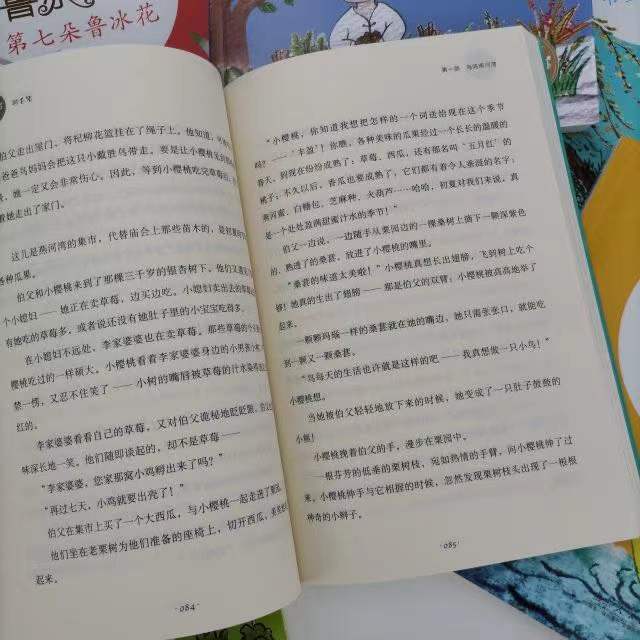 第七朵鲁冰花
伯父走出屋门，将杞柳花篮挂在了绳子上。他知道，
爸爸妈妈会把这只小戴胜鸟带走。要是让小樱桃
她走出了家门。
这儿是燕河湾的集市，代替庙会上那些苗木的，是
各种瓜果。
伯父和小樱桃来到了那棵三千岁的银杏树下。他们又
个小媳妇——她正在卖草莓，边买边吃。小媳妇卖出去的
有她吃的草莓多，或者说还没有她肚子里的小宝宝吃得多。
在小媳妇不远处，李家婆婆也在卖草莓，那些草莓的个
樱桃吃过的一样硕大。小樱桃看着李家婆婆身边的小男孩
楚一愣，又忍不住笑了——小树的嘴唇被草莓的汁水染
红的。
李家婆婆看看自己的草莓，又对伯父诡秘地眨眨
味深长地一笑。他们随即谈起的，却不是草莓——
“李家婆婆，您家那窝小鸡孵出来了吗？”
“再过七天，小鸡就要出壳了！”
伯父在集市上买了一个大西瓜，与小樱桃一起走进了
他们坐在老栗树为他们准备的座椅上，切开西瓜，
起来。
·084·
第一部
“小樱桃，你知道我想把怎样的一个词送给现在这个季节
吗？——‘丰盈’！你瞧，各种美味的瓜果经过一个长长的温暖的
春天，到现在纷纷成熟了：草莓、西瓜，还有那名叫‘五月红’的
橘子；不久以后，香瓜也要成熟了，它们都有着令人垂涎的名字：
黄河蜜、白糖包、芝麻种、火葫芦……哈哈，初夏对我们来说，真
是一个处处盈满甜蜜汁水的季节！”
伯父一边说，一边随手从栗园边的一棵桑树上摘下一颗深紫色
的、熟透了的桑葚，放进了小樱桃的嘴里。
“桑葚的味道太美啦！”小樱桃真想长出翅膀，飞到树上吃个
够！她真的生出了翅膀——那是伯父的双臂；小樱桃被高高地举了
起来。
一颗颗玛瑙一样的桑葚就在她的嘴边，她只需张张口，就能吃
到一颗又一颗桑葚。
“鸟每天的生活也许就是这样的吧——我真想做一只小鸟！”
小樱桃想。
当她被伯父轻轻地放下来的时候，她变成了一只肚子鼓鼓的
小樱桃挽着伯父的手，漫步在栗园中。
一根芬芳的低垂的栗树枝，宛如热情的手臂，向小樱桃伸了过
来。小樱桃伸手与它相握的时候，忽然发现栗树枝头出现了一根根
神奇的小辫子。
·085·